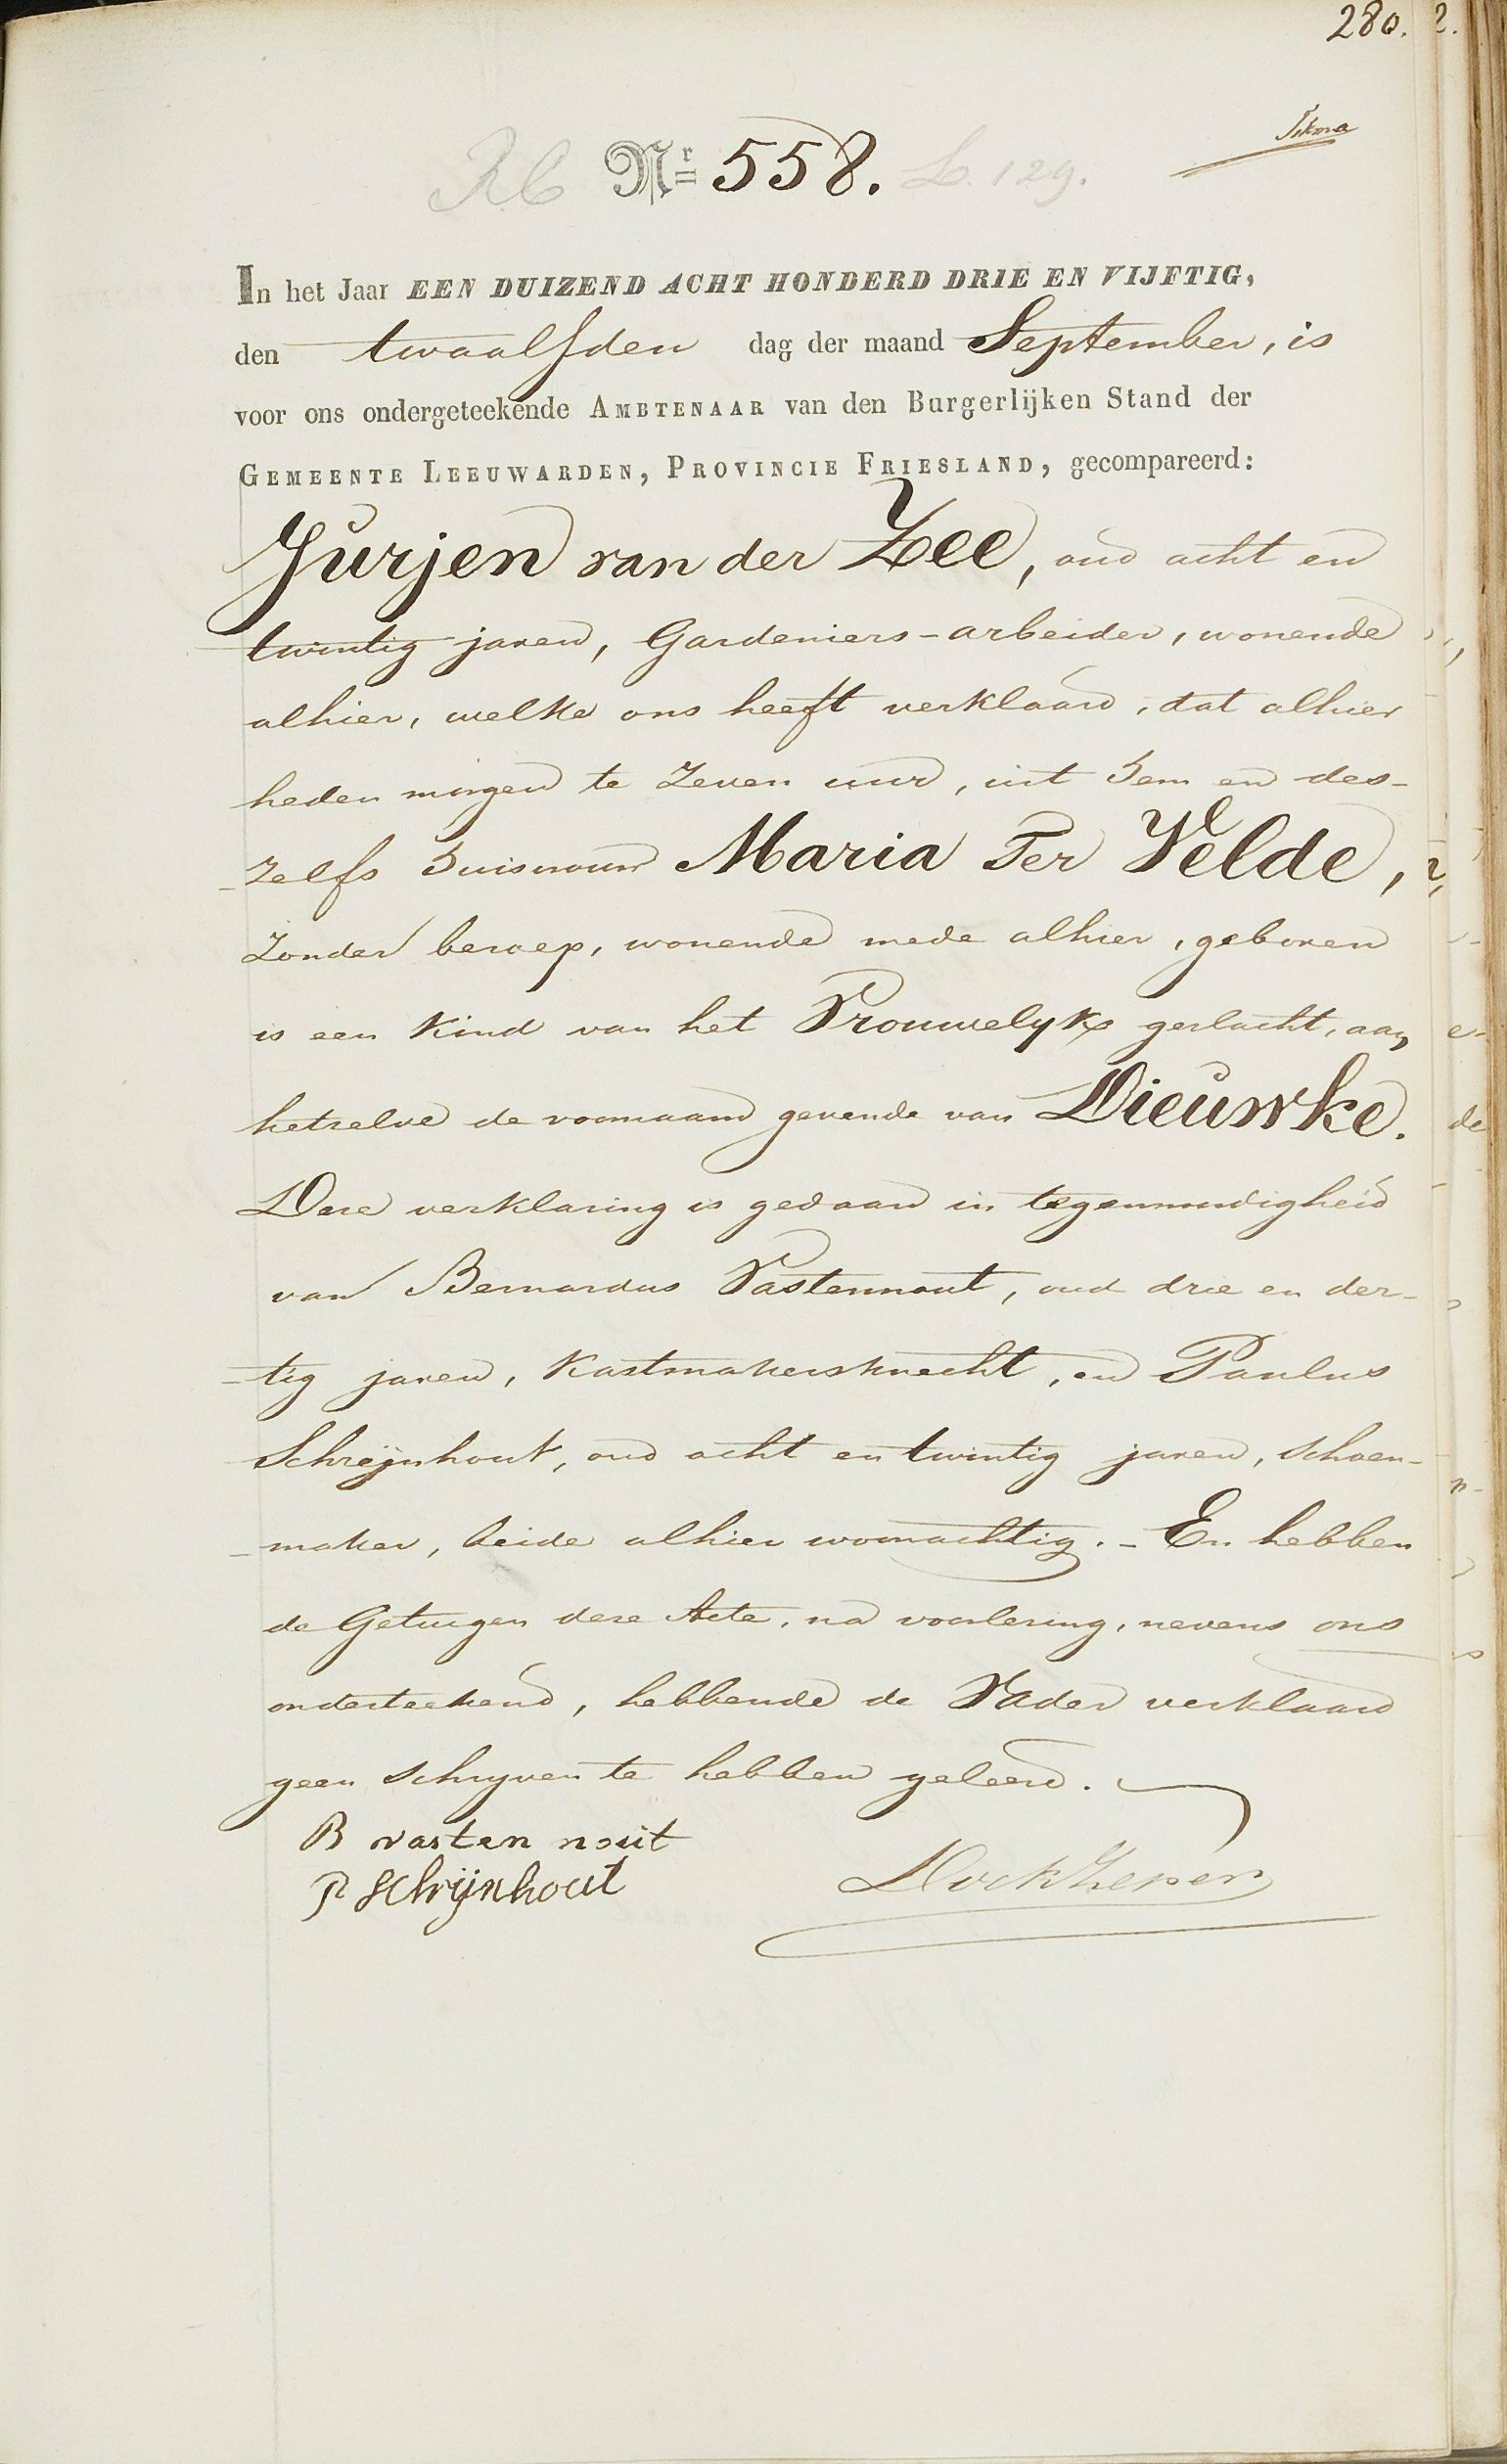 280.
RC Nr 558. L. 129.
In het Jaar EEN DUIZEND ACHT HONDERD DRIE EN VIJFTIG,
den twaalfden dag der maand September, is
voor ons ondergeteekende AMBTENAAR van den Burgerlijken Stand der
GEMEENTE LEEUWARDEN, PROVINCIE FRIESLAND, gecompareerd:
Jurjen van der Zee, oud acht en
twintig jaren, Gardeniers-arbeider, wonende
alhier, welke ons heeft verklaard, dat alhier
heden morgen te Zeven uur, uit hem en des-
zelfs huisvrouw Maria Ter Velde,
Zonder beroep, wonende mede alhier, geboren
is een Kind van het Vrouwelyk geslacht, aan
hetzelve de voornaam gevende van Dieuwke.
Deze verklaring is gedaan in tegenwoordigheid
van Bernardus Vastenhout, oud drie en der-
tig jaren, Kastmakersknecht, en Paulus
Schrijnhout, oud acht en twintig jaren, schoen-
maker, beide alhier woonachtig. - En hebben
de Getuigen deze Acte, na voorlezing, nevens ons
onderteekend, hebbende de Vader verklaard
geen schryven te hebben geleerd.
B vasten nout
P Schrijnhout